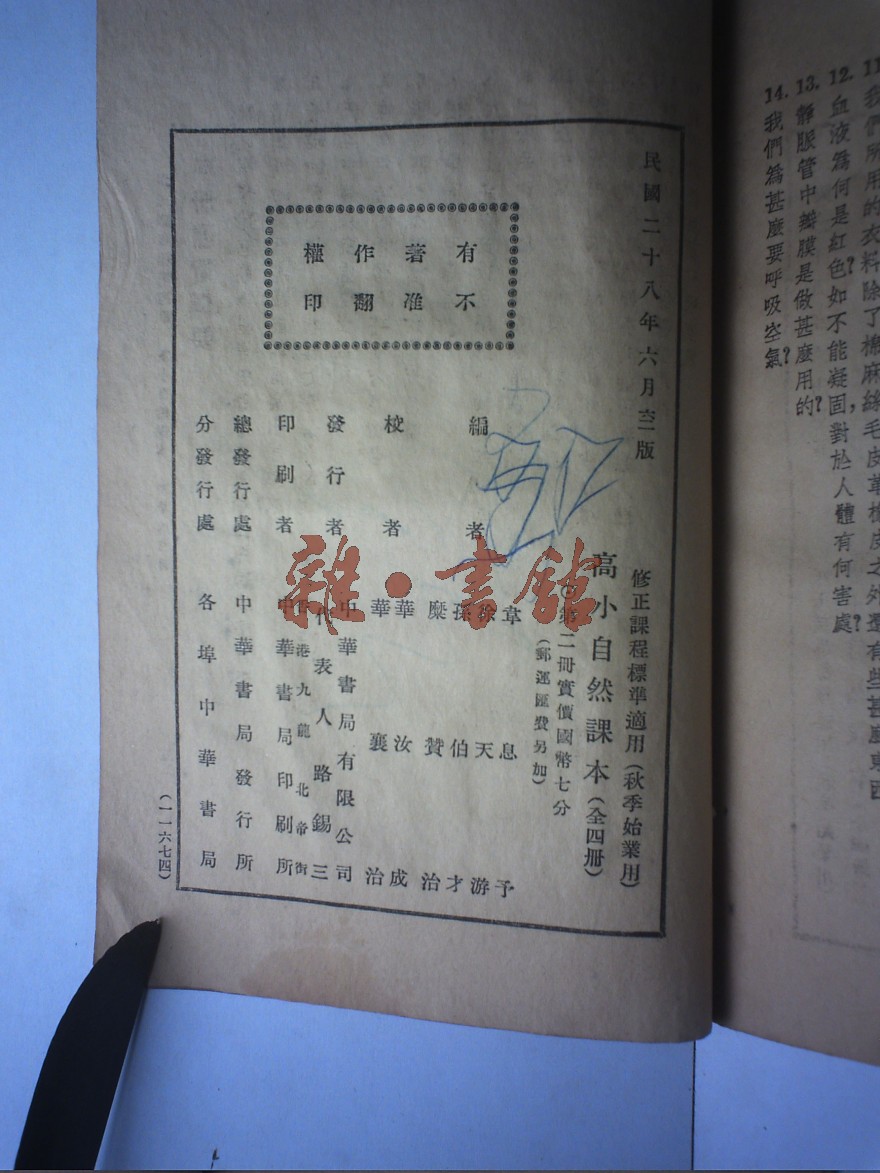 11. 我們所用的衣料除了棉麻絲毛皮革橡皮之外還有些甚麼東西
12. 血液為何是紅色?如不能凝固,對於人體有何害處?
13. 靜脈管中瓣膜是做甚麼用的?
14. 我們為甚麼要呼吸空氣?
民國二十八年六月版
有著作權
不准翻印
修正課程標準適用(秋季始業用)
高小自然課本(全四冊)
第二冊實價國幣七分
(郵運匯費另加)
編者 章息予
徐天游
孫伯才
糜贊治
校者 華汝成
華襄治
發行者 中華書局有限公司
代表人 路錫三
香港九龍北帝街
印刷者 中華書局印刷所
總發行處 中華書局發行所
分發行處 各埠中華書局
(一一六七四)
雜·書館